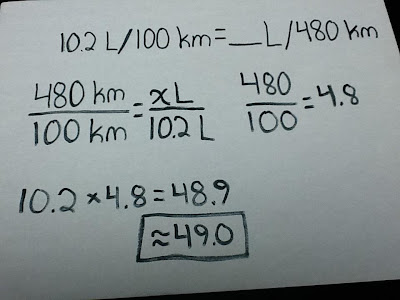 10.2 L/100 km = __ L/480 km
480 km/100 km = x L/10.2 L
480/100 = 4.8
10.2 × 4.8 = 48.9
≈49.0